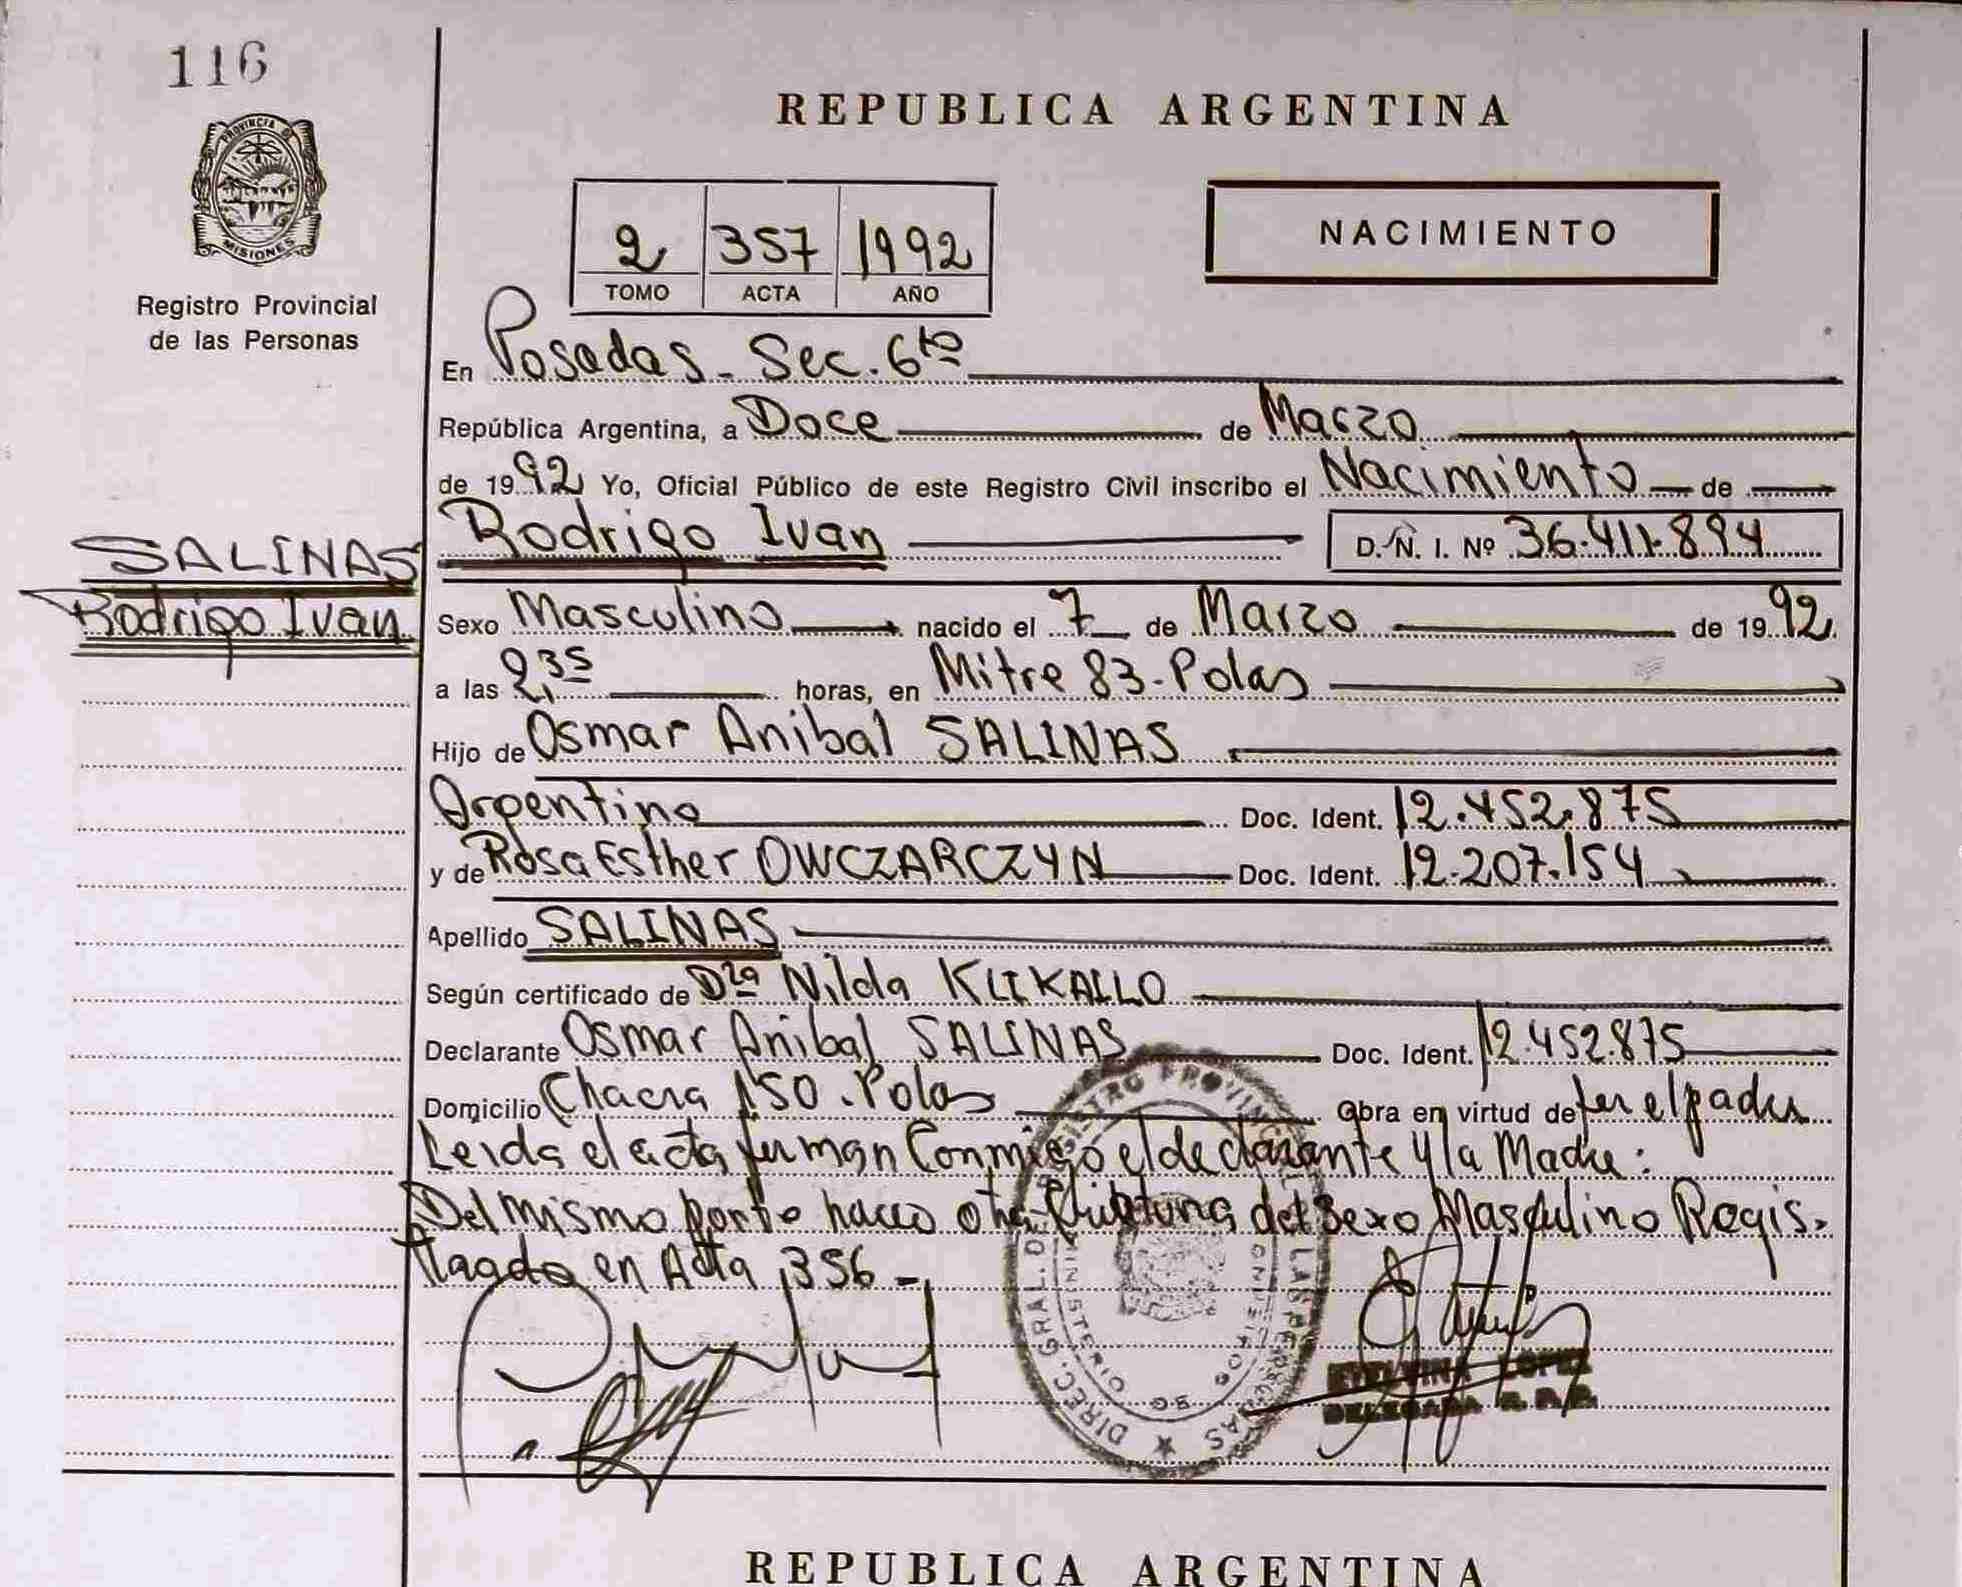 116
REPUBLICA ARGENTINA
PROVINCIA D
MISIONES
Registro Provincial
de las Personas
NACIMIENTO
2 357 1992
TOMO ACTA AÑO
En Posadas - Sec. 6ta
República Argentina, a Doce de Marzo
de 1992 Yo, Oficial Público de este Registro Civil inscribo el Nacimiento de
Rodrigo Ivan D. N. I. Nº 36.411.894
SALINAS
Rodrigo Ivan
Sexo Masculino nacido el 7 de Marzo de 1992
a las 2,35 horas, en Mitre 83 - Pdas
Hijo de Osmar Anibal SALINAS
Argentino Doc. Ident. 12.452.875
y de Rosa Esther OWCZARCZYN Doc. Ident. 12.207.154
Apellido SALINAS
Según certificado de Dra Nilda
Declarante Osmar Anibal SALINAS Doc. Ident. 12.452.875
Domicilio Chacra 150 . Pdas Obra en virtud de ser el padre
Leida el acta firman Conmigo el declarante y la Madre:
Del mismo parto nacio otra Criatura del Sexo Masculino Regis-
trado en Acta 356 -
DIREC. GRAL. DEL REGISTRO PROVINCIAL DE LAS PERSONAS
MINISTERIO DE
LOPEZ
DELEGADA R. P. P.
REPUBLICA ARGENTINA